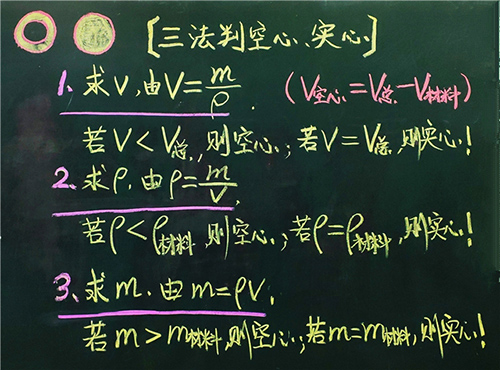 [三法判空心、实心]
1、求V,由V=m/ρ. (V空心=V总-V材料)
若V<V总,则空心;若V=V总,则实心!
2、求ρ,由ρ=m/V,
若ρ<ρ材料,则空心;若ρ=ρ材料,则实心!
3、求m,由m=ρV,
若m>m材料,则空心;若m=m材料,则实心!